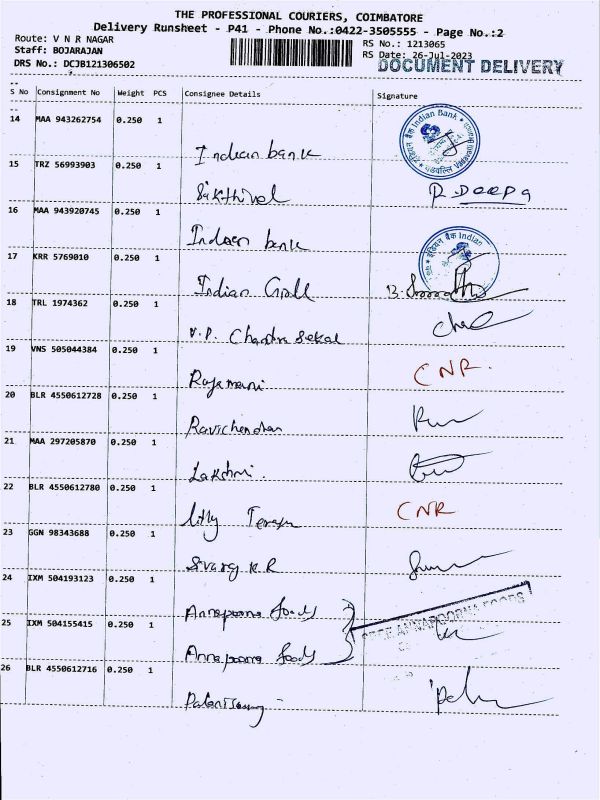 THE PROFESSIONAL COURIERS, COIMBATORE
Delivery Runsheet - P41 - Phone No.:0422-3505555 - Page No.:2
Route: V N R NAGAR
RS No.: 1213065
Staff: BOJARAJAN
RS Date: 26-Jul-2023
DRS No.: DCJB121306502
DOCUMENT DELIVERY
S No Consignment No Weight PCS Consignee Details Signature
14 MAA 943262754 0.250 1 Indian bank
15 TRZ 56993903 0.250 1 Sakthivel R DEEPA
16 MAA 943920745 0.250 1 Indian bank
17 KRR 5769010 0.250 1 Indian
18 TRL 1974362 0.250 1 V.P. Chandra Sekal
19 VNS 505044384 0.250 1 Rajamani CNR.
20 BLR 4550612728 0.250 1 Ravichendran
21 MAA 297205870 0.250 1 Lakshmi.
22 BLR 4550612780 0.250 1 Lilly CNR
23 GGN 98343688 0.250 1
24 IXM 504193123 0.250 1 Annapoorna foods
25 IXM 504155415 0.250 1 Annapoorna foods
SREE ANNAPOORNA FOODS
26 BLR 4550612716 0.250 1